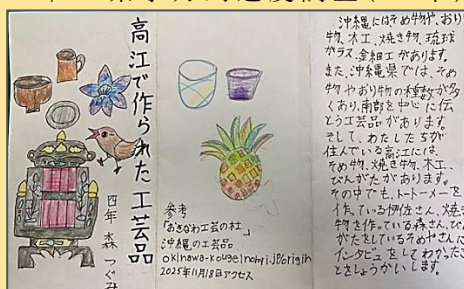 高江で作られた工芸品
四年 森 つぐみ
参考
「おきなわ工芸の杜」
沖縄の工芸品
okinawa-kougeinomori.jp/origin
2025年11月18日アクセス
沖縄にはそめ物や、おり
物、木工、焼き物、琉球
ガラス、金細工があります。
また、沖縄県では、そめ
物やおり物の種数が多
くあり、南部を中心に伝
とう工芸品があります。
そして、わたしたちが
住んでいる高江には、
そめ物、焼き物、木工、
びんがたがあります。
その中でも、トートーメーを
作っている さん、焼き
物を作っている森さん、びん
がたをしているそめやさんに
インタビュをしてわかったこ
とをしょうかいします。